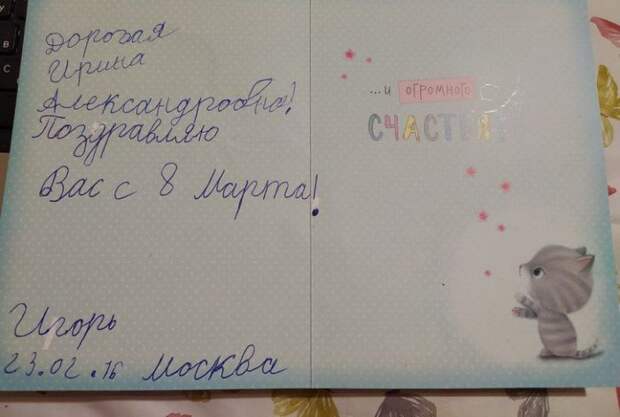 Дорогая
Ирина
Александровна!
Поздравляю
Вас с 8 Марта!
Игорь
23.02.16 Москва
...и огромного
СЧАСТЬЯ